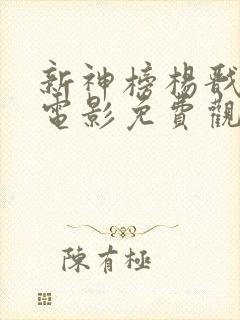 新神榜楊戩
電影免費觀
陳有極